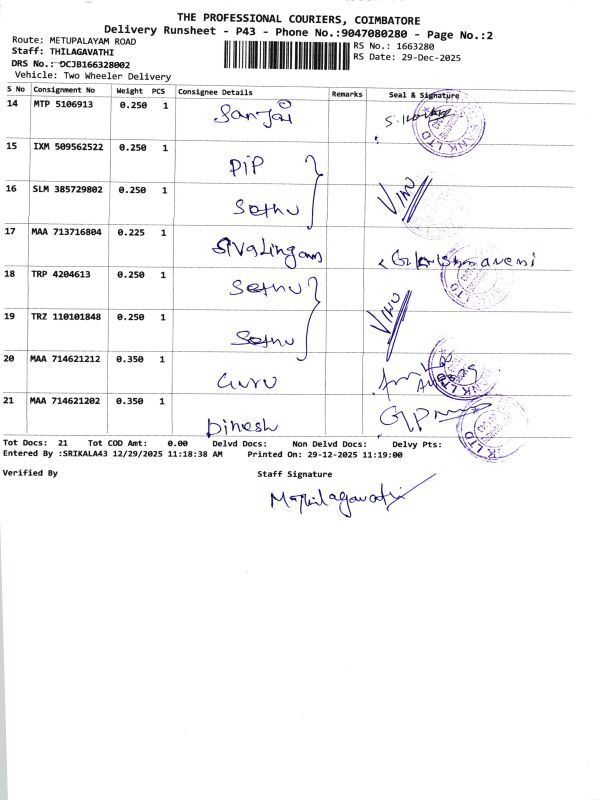 THE PROFESSIONAL COURIERS, COIMBATORE
Delivery Runsheet - P43 - Phone No.:9047080280 - Page No.:2
Route: METUPALAYAM ROAD
Staff: THILAGAVATHI
DRS No.: DCJB166328002
Vehicle: Two Wheeler Delivery
RS No.: 1663280
RS Date: 29-Dec-2025
S No Consignment No Weight PCS Consignee Details Remarks Seal & Signature
14 MTP 5106913 0.250 1 Sanjai
15 IXM 509562522 0.250 1 PIP
16 SLM 385729802 0.250 1 Sethu VINU
17 MAA 713716804 0.225 1 Sivalingam
18 TRP 4204613 0.250 1 Sethu
19 TRZ 110101848 0.250 1 Sethu VINU
20 MAA 714621212 0.350 1 Guru
21 MAA 714621202 0.350 1 Dinesh
Tot Docs: 21 Tot COD Amt: 0.00 Delvd Docs: Non Delvd Docs: Delvy Pts:
Entered By :SRIKALA43 12/29/2025 11:18:38 AM Printed On: 29-12-2025 11:19:00
Verified By Staff Signature
M.Thilagavathi